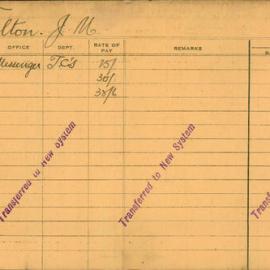 Felton. J. M.
OFFICE DEPT. RATE OF PAY REMARKS
Messenger T.C's 25/
30/
37/6
Transferred to New System
Transferred to New System